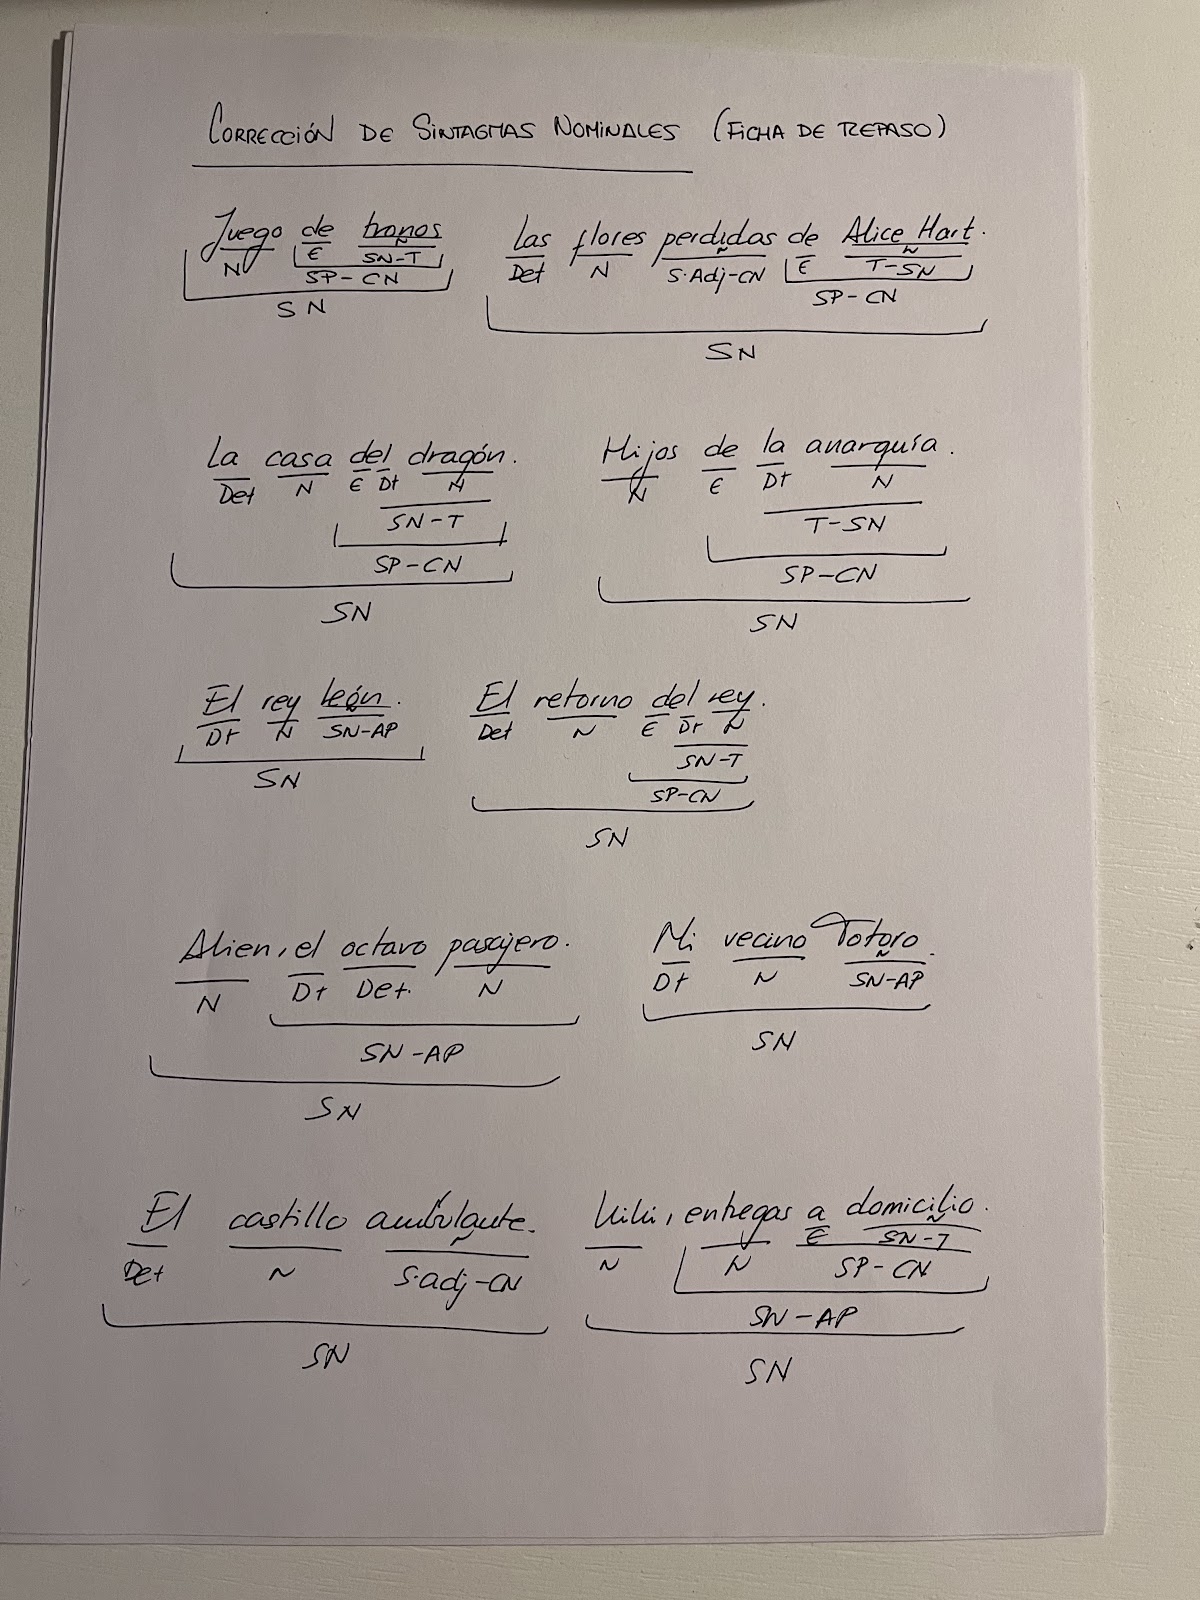 CORRECCIÓN DE SINTAGMAS NOMINALES (FICHA DE REPASO)
Juego de tronos
N E N SN-T
SP-CN
SN
Las flores perdidas de Alice Hart.
Det N N S.Adj-CN E N T-SN
SP-CN
SN
La casa del dragón.
Det N E Dt N
SN-T
SP-CN
SN
Hijos de la anarquía.
N E Dt N
T-SN
SP-CN
SN
El rey león.
Dt N N SN-AP
SN
El retorno del rey.
Det N E Dt N
SN-T
SP-CN
SN
Alien, el octavo pasajero.
N Dt Det. N
SN-AP
SN
Mi vecino Totoro.
Dt N N SN-AP
SN
El castillo ambulante.
Det N N S.adj-CN
SN
Kiki, entregas a domicilio.
N N E N SN-T
SP-CN
SN-AP
SN